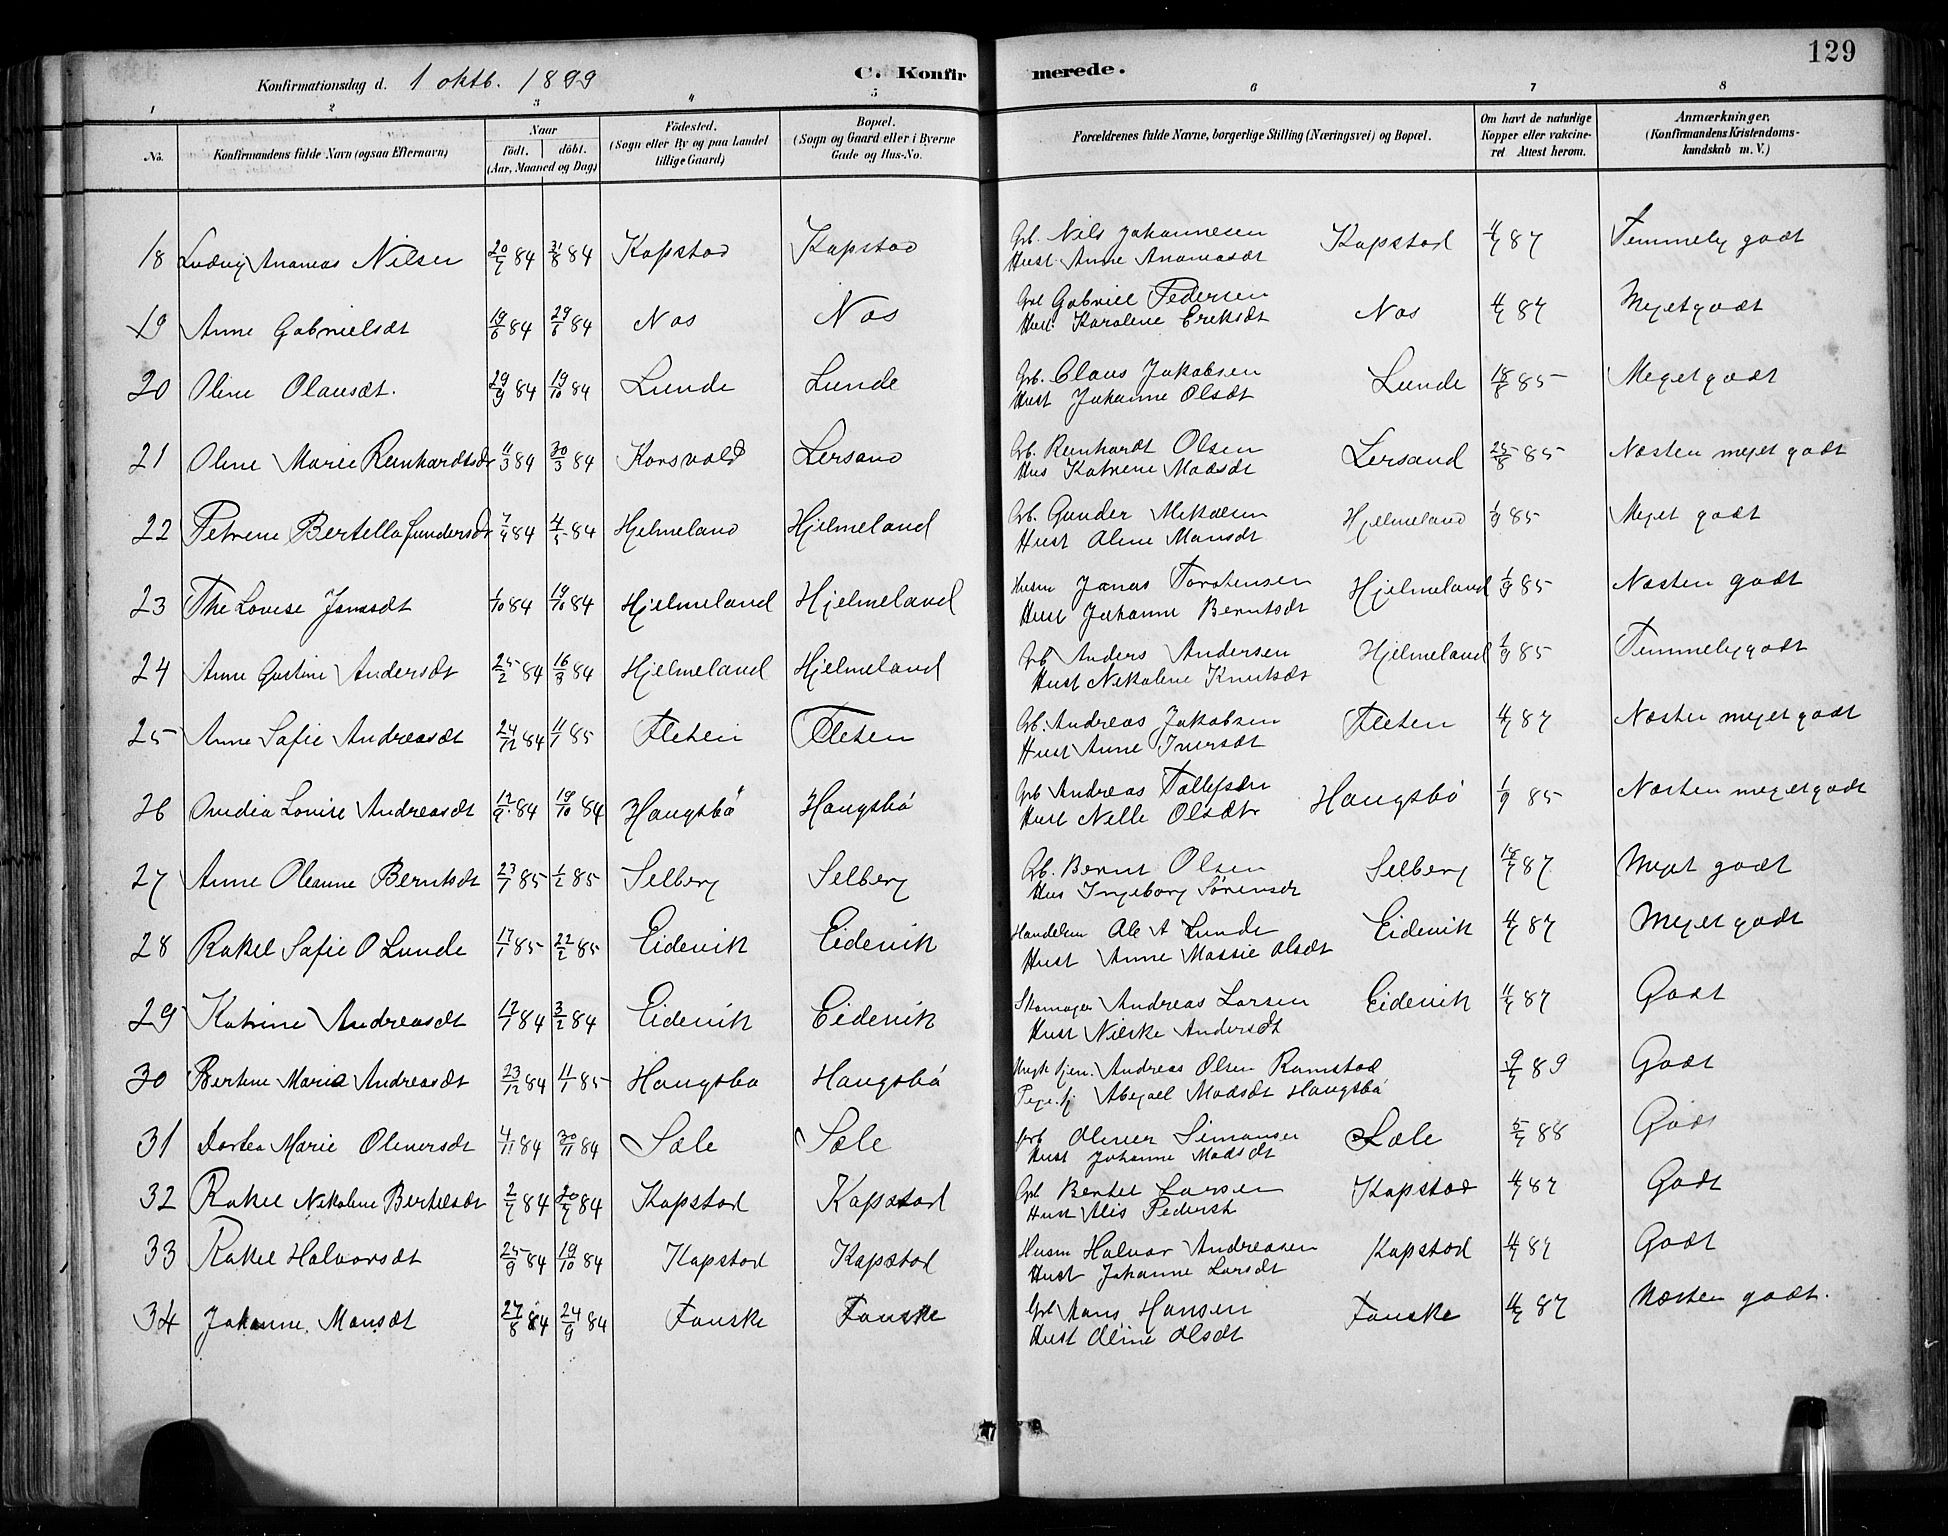 129
Konfirmationsdag d. 1 oktb. 1899 C. Konfirmerede.
1 2 3 4 5 6 7 8
No. Konfirmandens fulde Navn (ogsaa Efternavn) Naar født. döbt. (Aar, Maaned og Dag) Födested. (Sogn eller By og paa Landet tillige Gaard) Bopæl. (Sogn og Gaard eller i Byerne Gade og Hus-No. Forældrenes fulde Navne, borgerlige Stilling (Næringsvei) og Bopæl. Om havt de naturlige Kopper eller vakcineret Attest herom. Anmærkninger, (Konfirmandens Kristendomskundskab m. V.)
18 Ludvig Ananias Nilsen 20/7 84 31/8 84 Kapstad Kapstad Grb. Nils Johannesen Kapstad 4/7 87 Temmelig godt
Hust Anne Ananiasdt
19 Anne Gabrielsdt 19/6 84 29/6 84 Nos Nos Grb Gabriel Pedersen Nos 4/7 87 Meget godt
Hust. Karolene Eriksdt
20 Oline Olausdt. 29/9 84 19/10 84 Lunde Lunde Grb. Olaus Jakobsen Lunde 18/8 85 Meget godt
Hust Johanne Olsdt
21 Oline Marie Reinhardtsdt 11/3 84 30/3 84 Korsvold Lersand Grb. Reinhardt Olsen Lersand 25/8 85 Næsten meget godt
Hus Katrine Madsdt
22 Petrine Bertella Gundersdt 7/4 84 4/5 84 Hjelmeland Hjelmeland Grb. Gunder Mikalsen Hjelmeland 1/9 85 Meget godt
Hust Oline Monsdt
23 The Lovise Jonasdt 1/10 84 19/10 84 Hjelmeland Hjelmeland Husm Jonas Torstensen Hjelmeland 1/9 85 Næsten godt
Hust Johanne Berntsdt
24 Anne Gustine Andersdt 25/2 84 16/3 84 Hjelmeland Hjelmeland Grb Anders Andersen Hjelmeland 1/9 85 Temmelig godt
Hust Nekoline Knutsdt
25 Anne Safie Andreasdt 24/12 84 11/1 85 Fleten Fleten Grb. Andreas Jakobsen Fleten 4/7 87 Næsten meget godt
Hust Anne Iversdt
26 Ovedia Lovise Andreasdt 12/9 84 19/10 84 Haugsbö Haugsbö Grb Andreas Tollefsen Haugsbö 1/9 85 Næsten meget godt
Hust Nelle Olsdt
27 Anne Oleanne Berntsdt 23/1 85 1/2 85 Selberg Selberg Grb. Bernt Olsen Selberg 18/7 87 Meget godt
Hus Ingeborg Sörensdt
28 Rakel Safie O Lunde 17/1 85 22/2 85 Eidevik Eidevik Handelsm Ole A Lunde Eidevik 4/7 87 Meget godt
Hust Anne Massie Olsdt
29 Katrine Andreasdt 12/1 84 3/2 84 Eidevik Eidevik Skomager Andreas Larsen Eidevik 11/7 87 Godt
Hust Niske Andersdt
30 Bertine Marie Andreasdt 23/12 84 11/1 85 Haugsbø Haugsbø Andreas Olsen Ramstad 9/7 89 Godt
Abegael Madsdt Haugsbø
31 Dortea Marie Oliversdt 4/11 84 30/11 84 Sæle Sæle Grb Oliver Simonsen Sæle 5/7 88 Godt
Hust Johanne Madsdt
32 Rakel Nekoline Bertelsdt 2/7 84 20/7 84 Kapstad Kapstad Grb Bertel Larsen Kapstad 4/7 87 Godt
Hust Alis Pedersdt
33 Rakel Halvorsdt 25/9 84 19/10 84 Kapstad Kapstad Husm Halvor Andreasen Kapstad 4/7 87 Godt
Hust Johanne Larsdt
34 Johanne Monsdt 27/8 84 24/9 84 Fonske Fonske Grb Mons Hansen Fonske 4/7 87 Næsten godt.
Hust Oline Olsdt